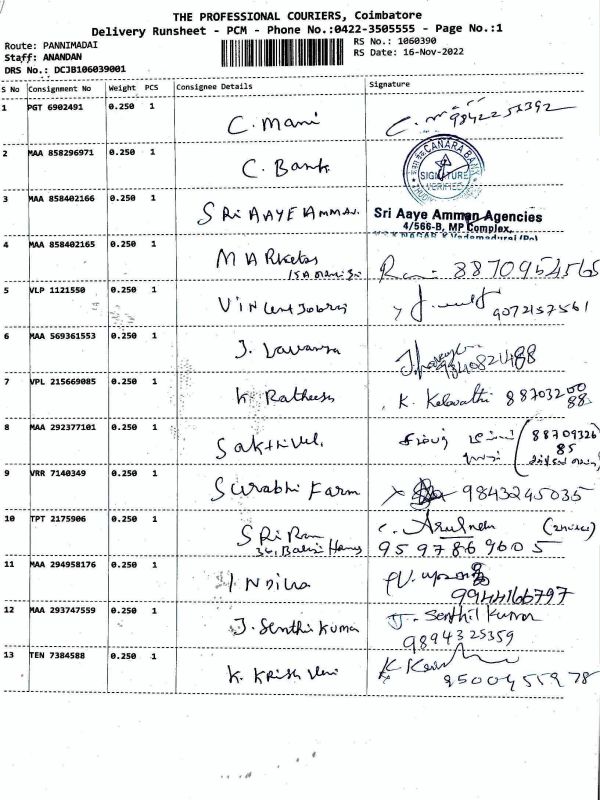 THE PROFESSIONAL COURIERS, Coimbatore
Delivery Runsheet - PCM - Phone No.:0422-3505555 - Page No.:1
Route: PANNIMADAI
RS No.: 1060390
Staff: ANANDAN
RS Date: 16-Nov-2022
DRS No.: DCJB106039001
S No Consignment No Weight PCS Consignee Details Signature
1 PGT 6902491 0.250 1 C. Mani C. 9842253392
2 MAA 858296971 0.250 1 C. Bank
CANARA BANK
SIGNATURE
VERIFIED
3 MAA 858402166 0.250 1 SRi AAYE AMMAN Sri Aaye Amman Agencies
4/566-B, MP Complex,
4 MAA 858402165 0.250 1 MARketas 8870954565
5 VLP 1121550 0.250 1 Vincent Jobraj 9072157561
6 MAA 569361553 0.250 1 J. Lavanya
9840821488
7 VPL 215669085 0.250 1 K. Ratheesh K. Kalavathi 88703200
88
8 MAA 292377101 0.250 1 Sakthivel 88709326
85
9 VRR 7140349 0.250 1 Surabhi Farm 9843245035
10 TPT 2175906 0.250 1 SRi Ram
9597869605
11 MAA 294958176 0.250 1 INDiRa
9944166797
12 MAA 293747559 0.250 1 J. Senthil Kumar J. Senthil Kumar
9894325359
13 TEN 7384588 0.250 1 K. KRish Veni K
9500455978